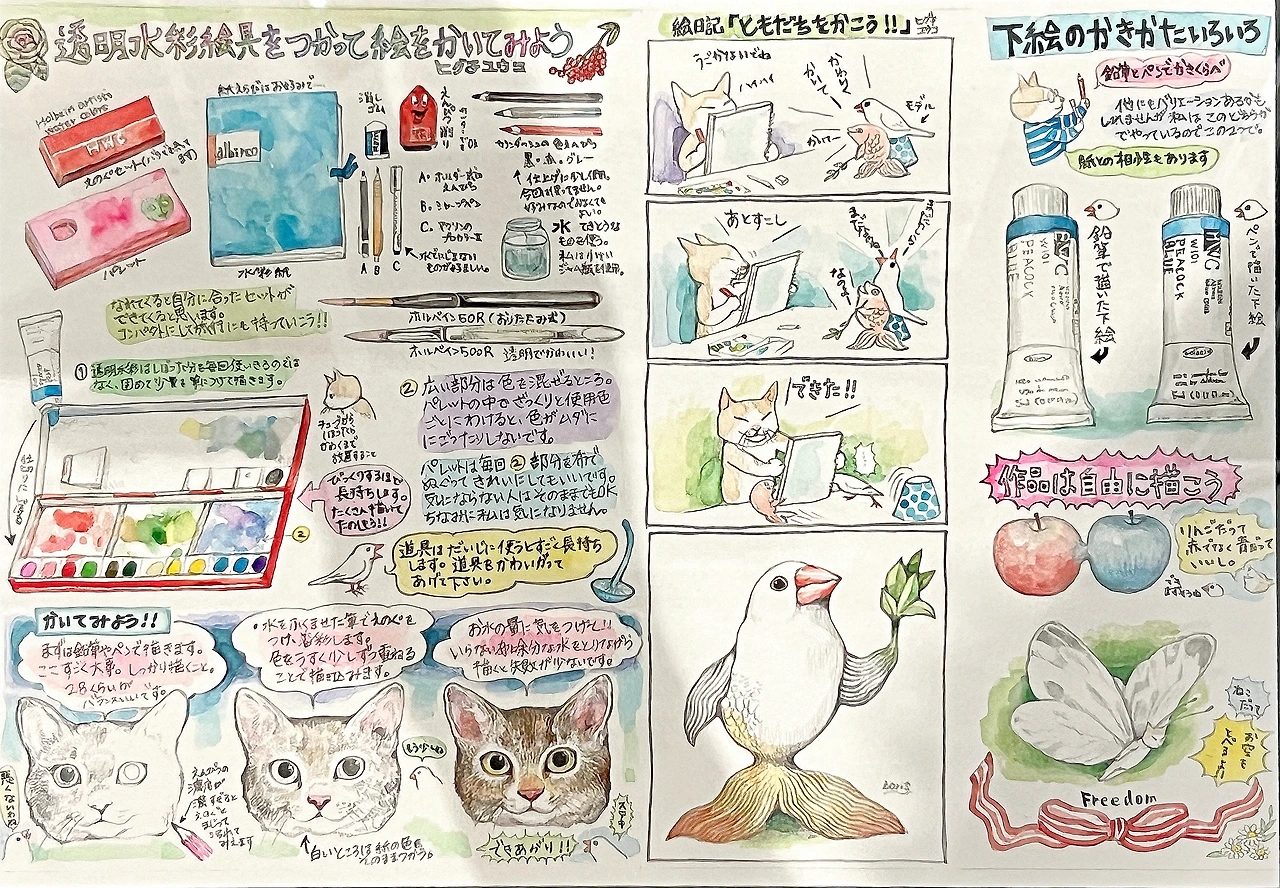 透明水彩絵具をつかって絵をかいてみよう
ヒグチユウコ
Holbein artists
water colors
HWC
えのぐセット(バラでも売ってます)
パレット
紙えらびはお好みで
albireo
水彩紙
消しゴム
えんぴつ削り
カランダッシュの色えんぴつ
黒・赤・グレー
A・ホルダー式の
えんぴつ
B・シャープペン
A B C
水
てきとうな
ものを使う。
私は小さい
ジャム瓶を使用。
なれてくると自分に合ったセットが
できてくると思います。
コンパクトにして旅行にも持っていこう!!
ホルベイン50R(おりたたみ式)
ホルベイン500R 透明でかわいい!
①透明水彩はしぼった分を毎回使いきるのでは
なく、固めて少量を筆につけて描きます。
チューブから
しぼったら
かわくまで
放置すること
②広い部分は色を混ぜるところ。
パレットの中でざっくりと使用色
ごとにわけると、色がムダに
にごったりしないです。
びっくりするほど
長持ちします。
たくさん描いて
たのしもう!!
パレットは毎回②部分を布で
ぬぐってきれいにしてもいいです。
気にならない人はそのままでもOK
ちなみに私は気になりません。
②
道具はだいじに使うとすごく長持ち
します。道具をかわいがって
あげて下さい。
かいてみよう!!
まずは鉛筆やペンで描きます。
ここすごく大事。しっかり描くこと。
2Bくらいが
バランスいいです。
・水をふくませた筆でえのぐを
つけ、着彩します。
色をうすく少しずつ重ねる
ことで描き込みます。
お水の量に気をつけて!!
いらない布に余分な水をとりながら
描くと失敗が少ないです。
悪くないわね
えんぴつの
濃度が
濃すぎると
えのぐと
まじって
汚れて
みえます
もう少しね
↑白いところは紙の色を
そのままつかう。
できあがり!!
絵日記「ともだちをかこう!!」ヒグチユウコ
うごかないでね
ハイハイ
かわいく
かいて
かいてー
モデル
あとすこし
まだなの
なのよ
できた!!
下絵のかきかたいろいろ
鉛筆とペンでかきくらべ
他にもバリエーションあるかも
しれませんが私はこのどちらか
でやっているのでこの2つで。
紙との相性もあります
HWC
W101
PEACOCK
BLUE
鉛筆で描いた下絵
HWC
W101
PEACOCK
BLUE
ペンで描いた下絵
作品は自由に描こう
りんごだって
赤でなく青だって
いいし。
ねこだって
お空を
とべるよ!
Freedom